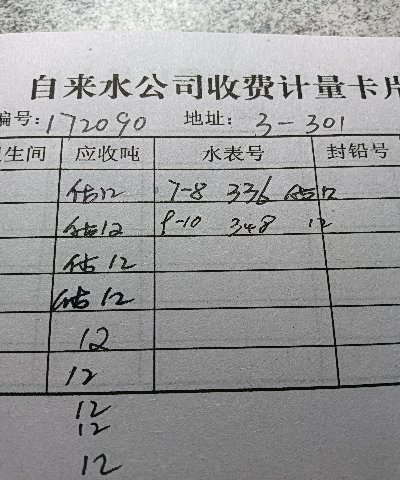 自来水公司收费计量卡片
编号:172090 地址: 3-301
生间 应收吨 水表号 封铅号
估12 7-8 336 估12
估12 9-10 348 12
估12
估12
12
12
12
12
12